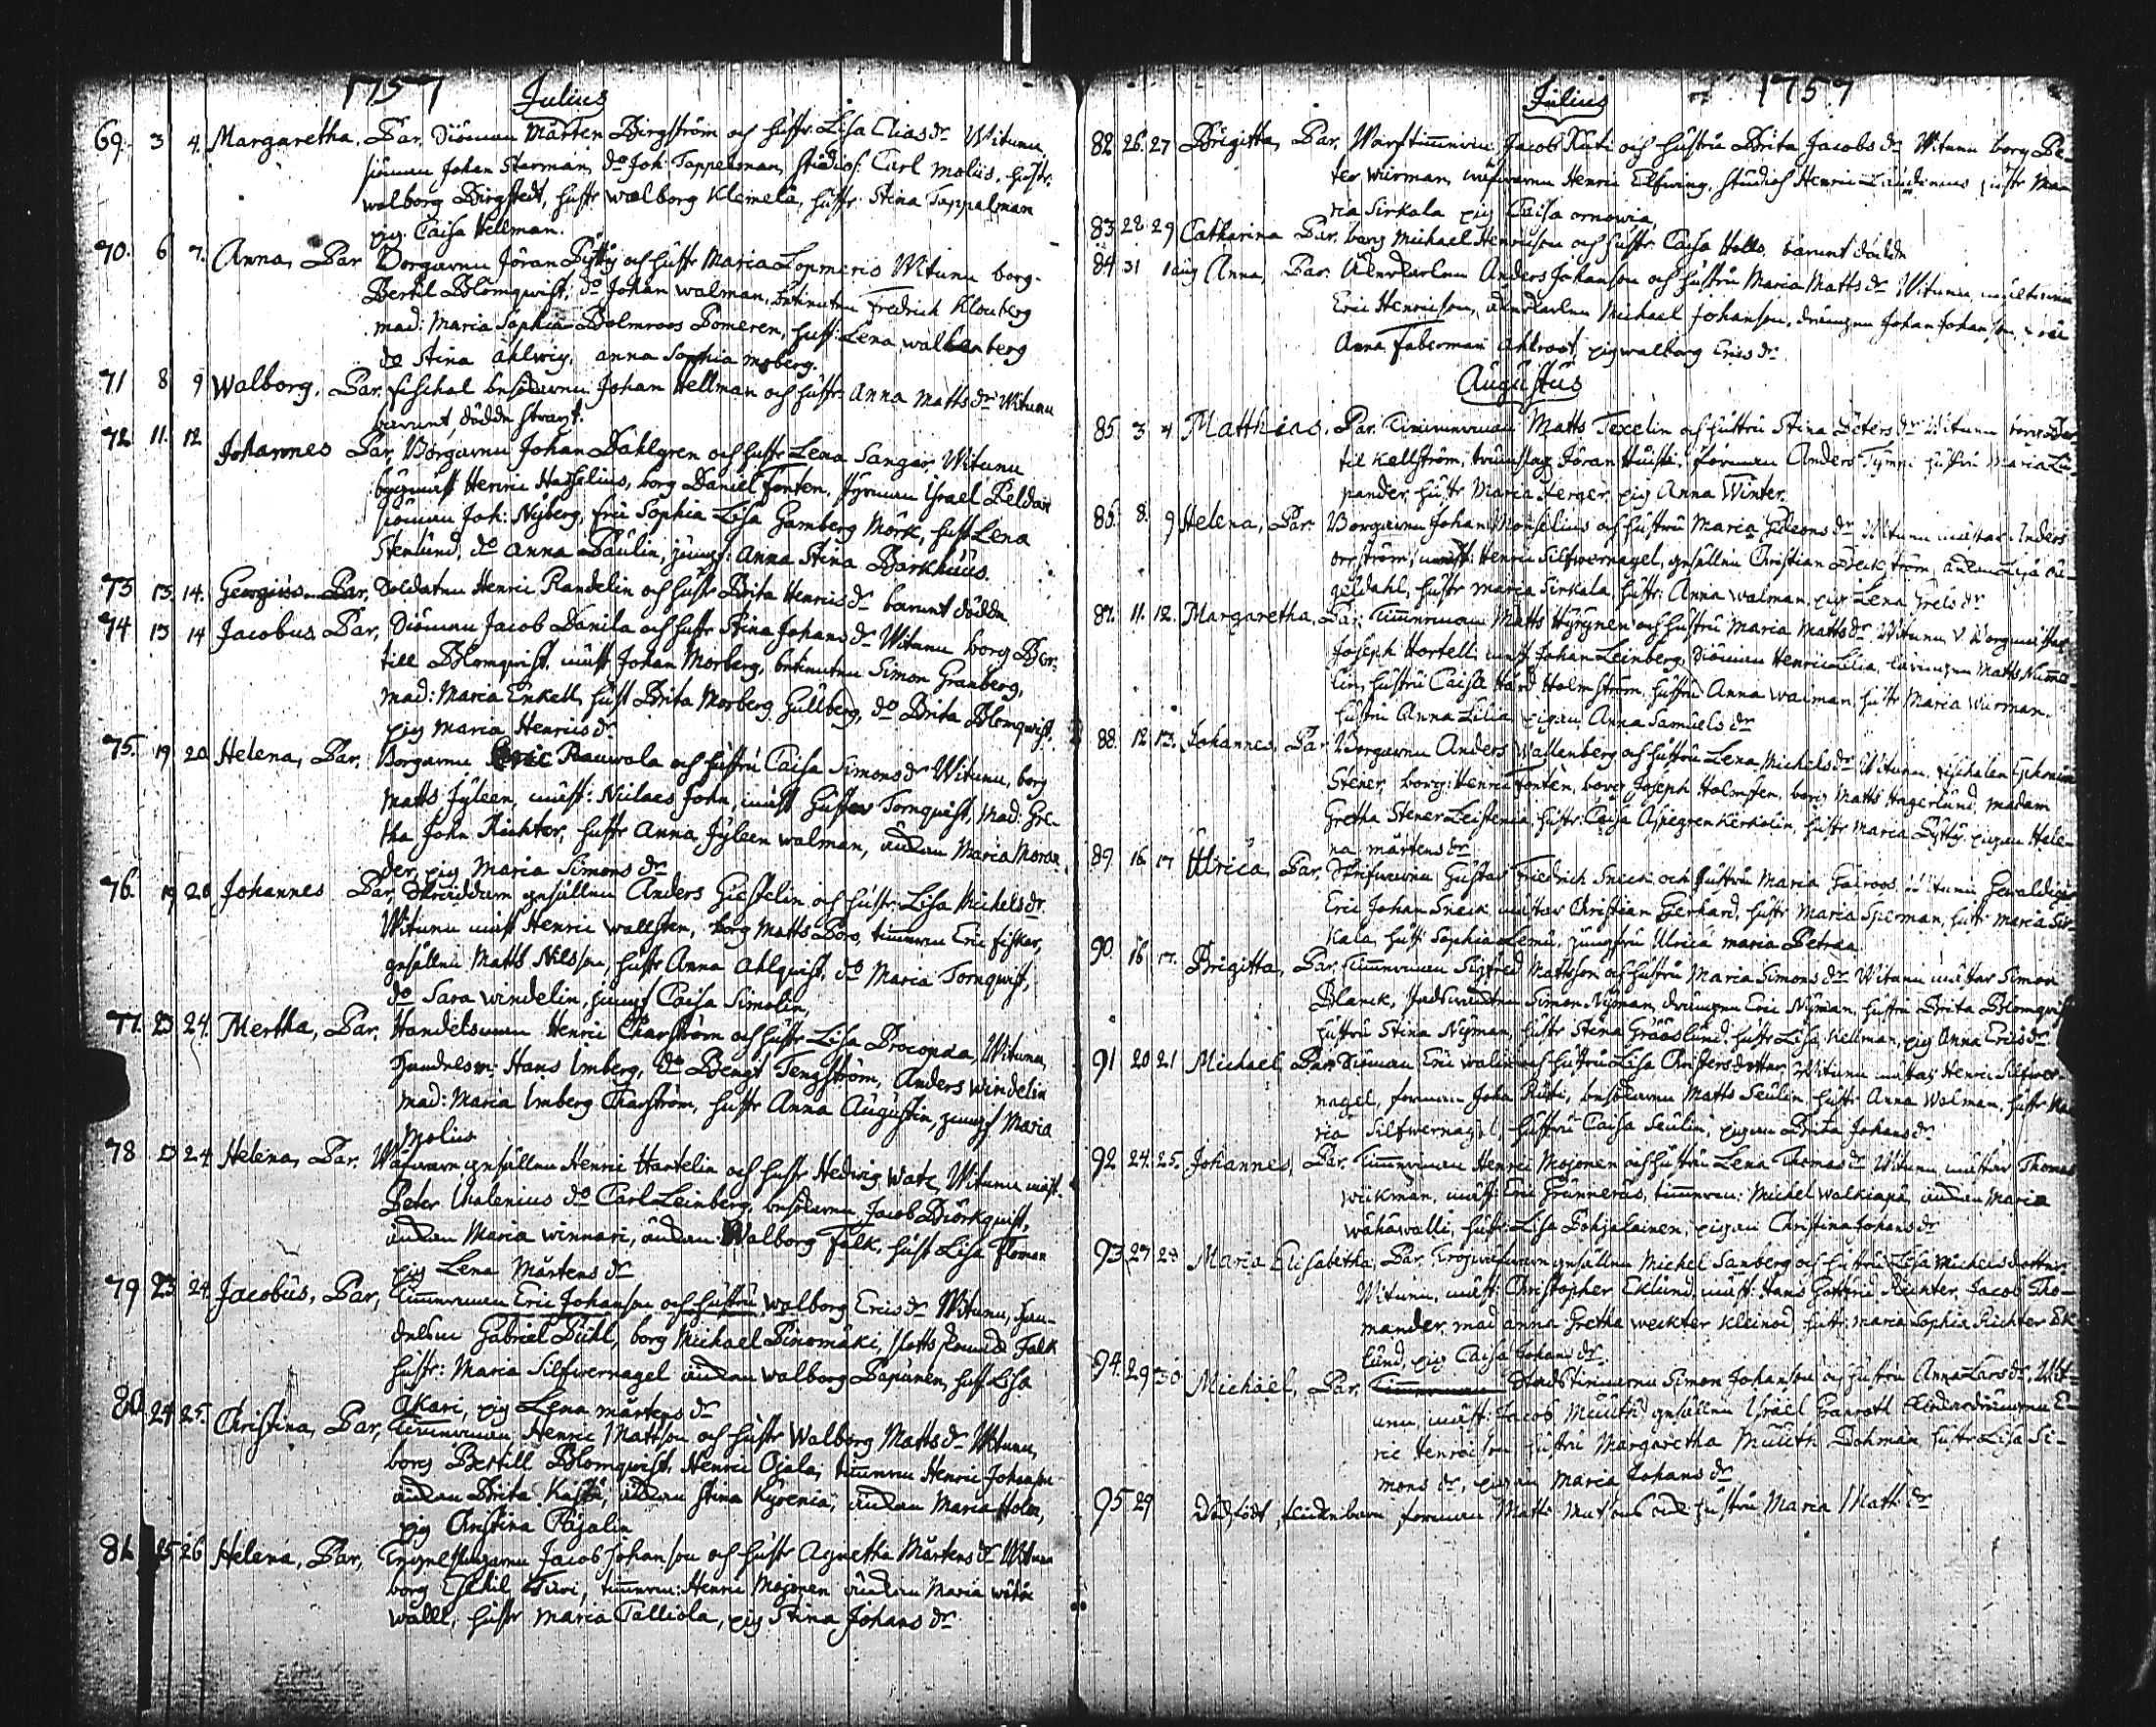 1757 Julius
69. 3 4. Margaretha. Par. Siöman Mårten Birgström och hustr: Lisa Eliasdr Witnen
siöman Johan Starman, do Joh: Tappelman, studios: Carl Molius, hustr:
walborg Birgstedt, hustr walborg Klemela, hustr: Stina Tappalman
pig: Caisa Hellman.
70. 6 7. Anna, Par Borgaren Jöran Pytty och hustr Maria Lopmeris Witnen borg.
Bertil Blomqwist, do Johan walman, betienten Fredrich Klouberg
mad: Maria Sophia Bolmroos Pomeren, hust: Lena wallenberg
do Stina ahlwig, anna Sophia moberg.
71 8 9 Walborg. Par. fischal besökaren Johan Hellman och hustr: Anna Mattsdr Witnen
barnet dödde strax.
72 11. 12 Johannes Par. Borgaren Johan Dahlgren och hustr Lena Sangar, Witnen
byggmäst Henric Hasselius, borg Daniel Forten, styrman Israel Peldan
siöman Joh: Nyberg, fru Sophia Lisa Gamberg Mörk, hust Lena
Stenlund, do Anna Paulin, jungf: Anna Stina Barkhuus.
73 13. 14. Georgius. Par. Soldaten Henric Randelin och hustr Brita Henricsdr barnet dödde
74 13 14 Jacobus. Par, Siöman Jacob Danila och hustr Stina Johansdr Witnen borg Ber-
till Blomqwist, mäst Johan Morberg, betienten Simon Granberg,
mad: Maria Enkell, hust Brita Morberg Gullberg, do Brita Blomqwist,
pig Maria Henricsdr
75. 19 20 Helena, Par. Borgaren Eric Rauwola och hustru Caisa Simonsdr Witnen, borg
Matts Jyleen, mäst: Niclaes John, mäst Gustav Tornquist, Mad: Gre-
tha John Richter, hustr Anna Jyleen walman, änkan Maria Moran-
der, pig Maria Simonsdr
76. 19 20 Johannes Par, Skräddare gesällen Anders Giestelin och hustr: Lisa Michelsdr
Witnen mäst Henric wallsten, borg Matts Boro, timmerm Eric fisker,
gesällen Matts Nilsson, hustr Anna Ahlquist, do Maria Tornqwist,
do Sara windelin, jungf Caisa Simolin,
77. 23 24. Mertha, Par. Handelsman Henric Charström och hustr Lisa Procopaa, Witnen,
Handlesm: Hans Imberg, do Bengt Tengström, Anders windelin
Mad: Maria Imberg Charström, hustr Anna Augustin, jungf Maria
Molius
78 23 24 Helena, Par. Wäfware gesällen Henric Hartelin och hustr Hedwig Wate, Witnen mäst.
Peter Uhalenius do Carl Leinberg, besökaren Jacob Biörkquist,
änkan Maria winnari, änkan: Walborg Falk, hust Lisa Floman
pig Lena Mårtensdr
79 23 24. Jacobus, Par, Timmerman Eric Johanson och hustru walborg Ericsdr Witnen, Han-
delsm Gabriel Pihl, borg Michael Pinomäki, Falk
hustr: Maria Silfwernagel änkan walborg Papunen, hust Lisa
Akari, pig Lena mårtensdr
80. 24 25. Christina, Par, Timmerman Henric Mattson och hustr Walborg Mattsdr Witnen,
borg Bertill Blomqwist, Henric Ojala, timmerm Henric Johanson
änkan Brita Kastrú, änkan Stina Kyrenia, änkan Maria Holm,
pig Christina Pajalin
81. 25 26 Helena, Par, Jacob Johanson och hustr Agnetha Mårtensdr Witnen
borg Eskil Turi, timmerm: Henric Mojonen änkan Maria wähä
walli, hustr Maria Talliola, pig Stina Johansdr
Julius 1757
82 26. 27 Brigitta, Par. Warftimmerm Jacob Ruti och hustru Brita Jacobsdr Witnen borg Pe-
ter wurman, Henric Elfwing, studios Henric Laudenius hustr Ma-
ria Sirkala pig Caisa ornowia,
83. 28. 29 Catharina Par. borg Michael Henricson och hustr. Caisa Holls. barnet dödde
84 31 1 aug Anna, Par. Åkerkarlen Anders Johanson och hustru Maria Mattsdr Witnen
Eric Henricson, åkerkarlen Michael Johanson, drängen Johan Johanson,
Anna Faberman Ahlroos, pig walborg Ericsdr.
Augustus
85. 3 4 Matthias. Par. Timmerman Matts Texelin och hustru Stina Petersdr Witnen borg Ber-
til Kellström, Jöran Huisti, förman Anders Tympi hustru Maria Lu-
pander, hustr Maria Herger, pig Anna Winter.
86. 8. 9 Helena, Par. Borgaren Johan Monselius och hustru Maria Gideonsdr Witnen mästar Anders
orrström, mäst: Henric Silfwernagel, gesällen Christian Beckström, änkan Lisa
gyldahl, hustr maria Sirkala, hustr: Anna walman, pig Lena Grelsdr
87. 11. 12. Margaretha, Par. Timmerman Matts Hyrynen och hustru Maria Mattsdr Witnen
Joseph Hortell, mäst Johan Leinberg, Siöman Henric Lilia, Matts Numme-
lin, hustru Caisa Hård Holmström, hustru Anna walman, hustr Maria Wurman,
hustru Anna Lilia, pigan Anna Samuelsdr
88. 12 13. Johannes, Par Borgaren Anders Wallenberg och hustru Lena Michelsdr Witnen, fischalen
Stener, borg: Henric Forten, borg Joseph Holmsten, borg Matts Hagerlund, madam
Gretha Stener Leistenia, hustr: Caisa Aspegren Kerkolin, hustr Maria Pytty, pigan Hele-
na mårtensdr
89. 16. 17 Ulrica, Par. Skrifwaren Gustav Friedrich Sneck och hustru Maria Gairoos, Witnen Gewaldiger
Eric Johan Sneck mästar Christian Gerhard, hustr Maria Spierman, hustr maria Sir-
kala, hust Sophia Lemu, jungfru Ulrica maria Petraa
90. 16 17. Brigitta, Par, Timmerman Sigfred Mattsson och hustru Maria Simonsdr Witnen mästar Simon
Blanck, Simon Nyman, drängen Eric Nyman, hustru Brita Blomqvist
hustru Stina Nyman, hustr Stina Grääslund, hustr Lisa Kellman, pig Anna Ericsdr
91 20 21 Michael, Par. Siöman Eric walin och hustru Lisa Christersdotter, Witnen mästar Henric Silfwer-
nagel, forman Joha Ruti, besökaren Matts Seulin, hustr Anna Walman, hustr Ma-
ria Silfwernagel, hustru Caisa Seulin, pigan Brita Johansdr
92 24. 25. Johannes, Par. Timmerman Henric Mojonen och hustru Lena Thomasdr Witnen, mästar Thomas
wiikman, mäst: Eric Grännerus, timmerm: Michel Walkiapä, änkan Maria
wähäwalli, hustr: Lisa Pohjalainen, pigan Christina Johansdr
93 27 28 Maria Elisabetha, Par. gesällen Michel Sanberg och hustru Lisa Michelsdotter
Witnen, mäst: Christopher Eklund, mäst: Hans Gottfrid Richter, Jacob Tho-
mander, mad anna Gretha weckter Kleinod, hustr: maria Sophia Richter Ek-
lund, pig Caisa Johansdr.
94. 29 30 Michael, Par. Timmerman Simon Johanson och hustru Anna Larsdr, Wit-
nen, mäst: Jacob Muuth, gesällen Israel Granroth E-
ric Henricson hustru Margaretha Muuth Dohman, hustr Lisa Si-
monsdr, pigan maria Johansdr
95 29 Dödfödt förman Matts och hustru Maria Mattsdr